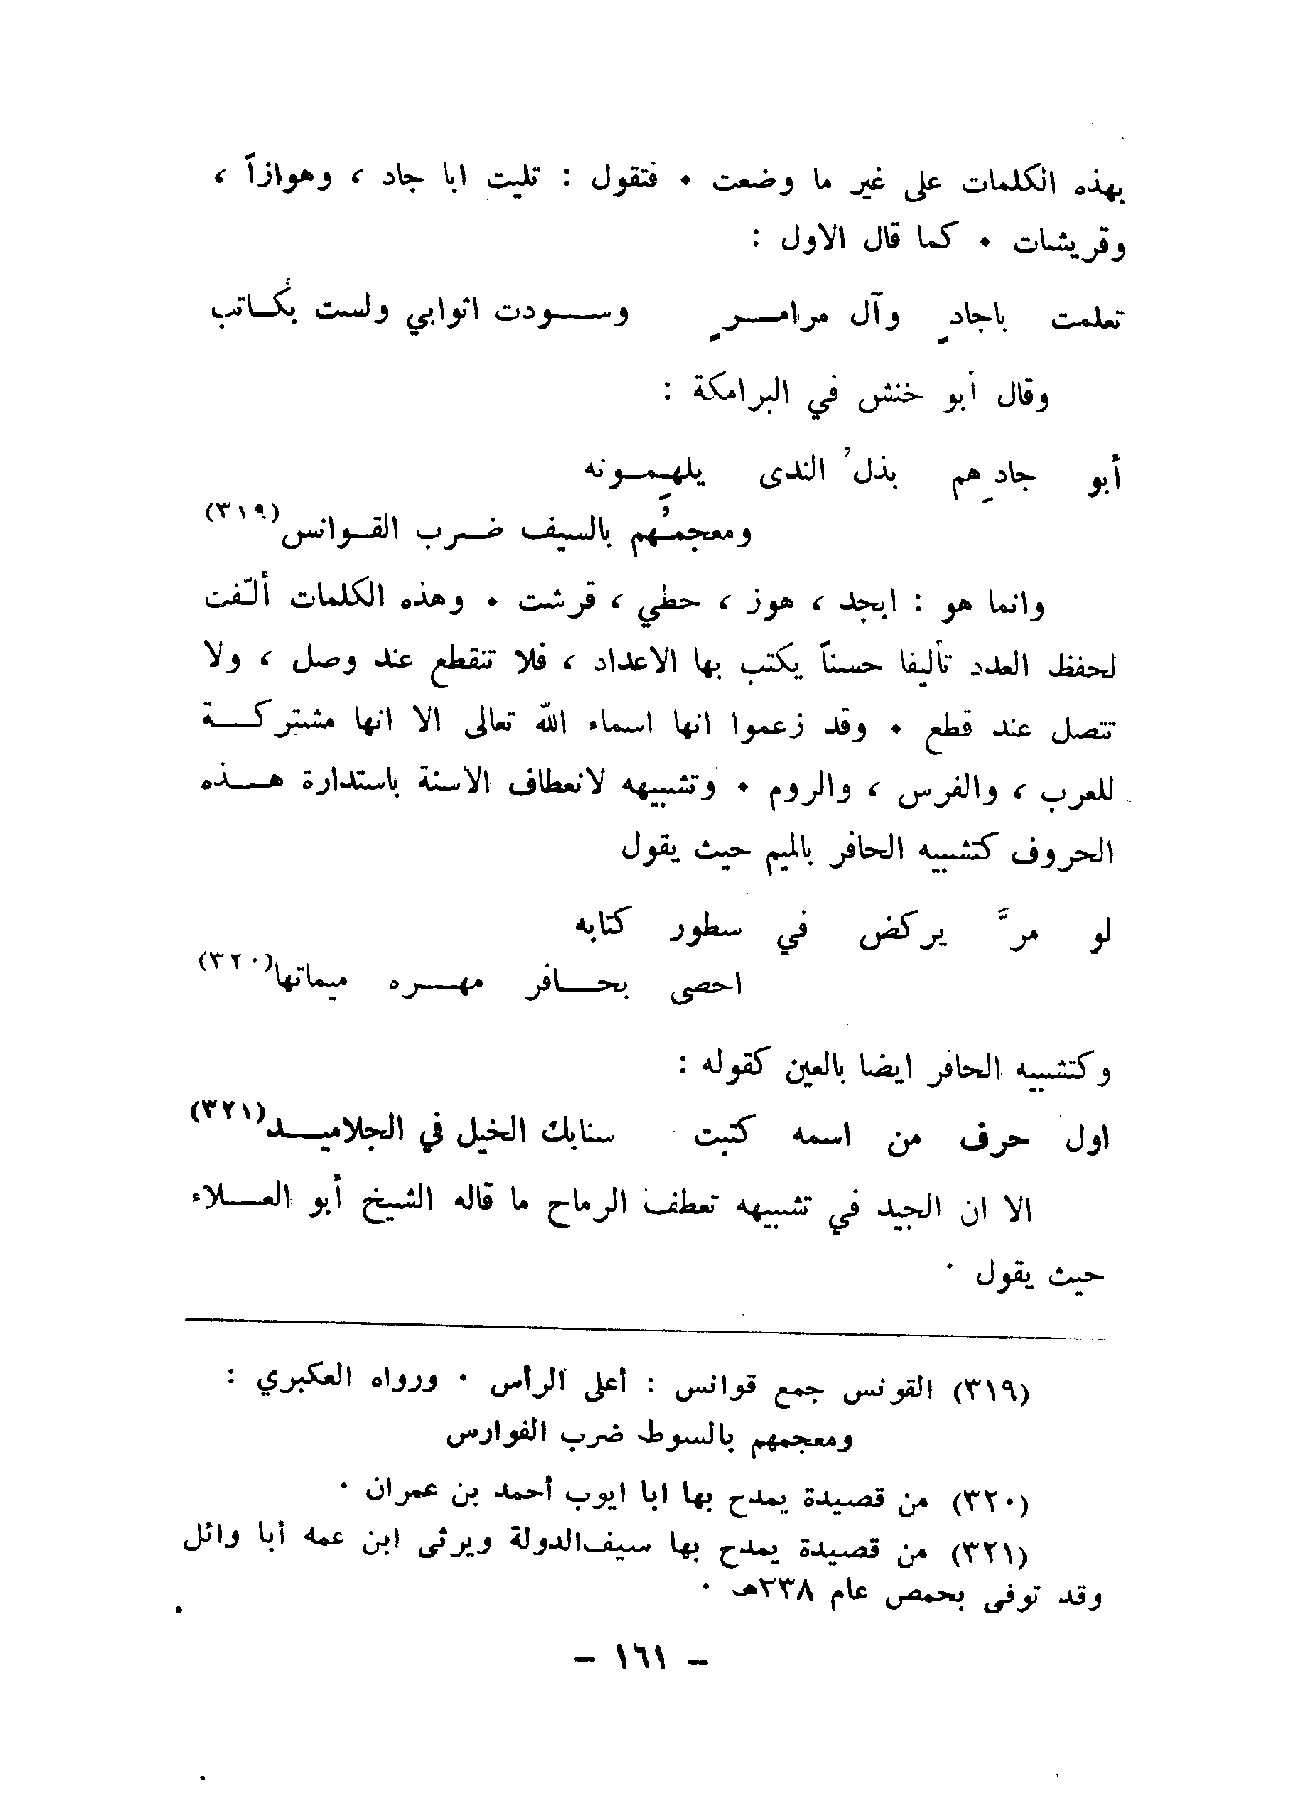 بهذه الكلمات على غير ما وضعت ٠ فتقول : تليت ابا جاد ، وهوازاً ،
وقريشات ٠ كما قال الاول :
تعلمت باجادٍ وآل مرامــرٍ وســودت اثوابي ولست بكُـاتب
وقال أبو خنش في البرامكة :
أبو جادِهم بذلُ الندى يلهمـونه
ومعجمُـهم بالسيف ضـرب القـوانس(٣١٩)
وانما هو : ابجد ، هوز ، حطي ، قرشت ٠ وهذه الكلمات ألّفت
لحفظ العدد تأليفا حسناً يكتب بها الاعداد ، فلا تنقطع عند وصل ، ولا
تتصل عند قطع ٠ وقد زعموا انها اسماء الله تعالى الا انها مشتركــة
للعرب ، والفرس ، والروم ٠ وتشبيهه لانعطاف الاسنة باستدارة هــذه
الحروف كتشبيه الحافر بالميم حيث يقول
لو مرَّ يركض في سطور كتابه
احصى بحــافر مهـره ميماتها(٣٢٠)
وكتشبيه الحافر ايضا بالعين كقوله :
اول حرف من اسمه كتبت سنابك الخيل في الجلاميــد(٣٢١)
الا ان الجيد في تشبيهه تعطف الرماح ما قاله الشيخ أبو العــلاء
حيث يقول ٠
(٣١٩) القونس جمع قوانس : أعلى الرأس ٠ ورواه العكبري :
ومعجمهم بالسوط ضرب الفوارس
(٣٢٠) من قصيدة يمدح بها ابا ايوب أحمد بن عمران ٠
(٣٢١) من قصيدة يمدح بها سيف الدولة ويرثى ابن عمه أبا وائل
وقد توفى بحمص عام ٣٣٨هـ ٠
– ١٦١ –